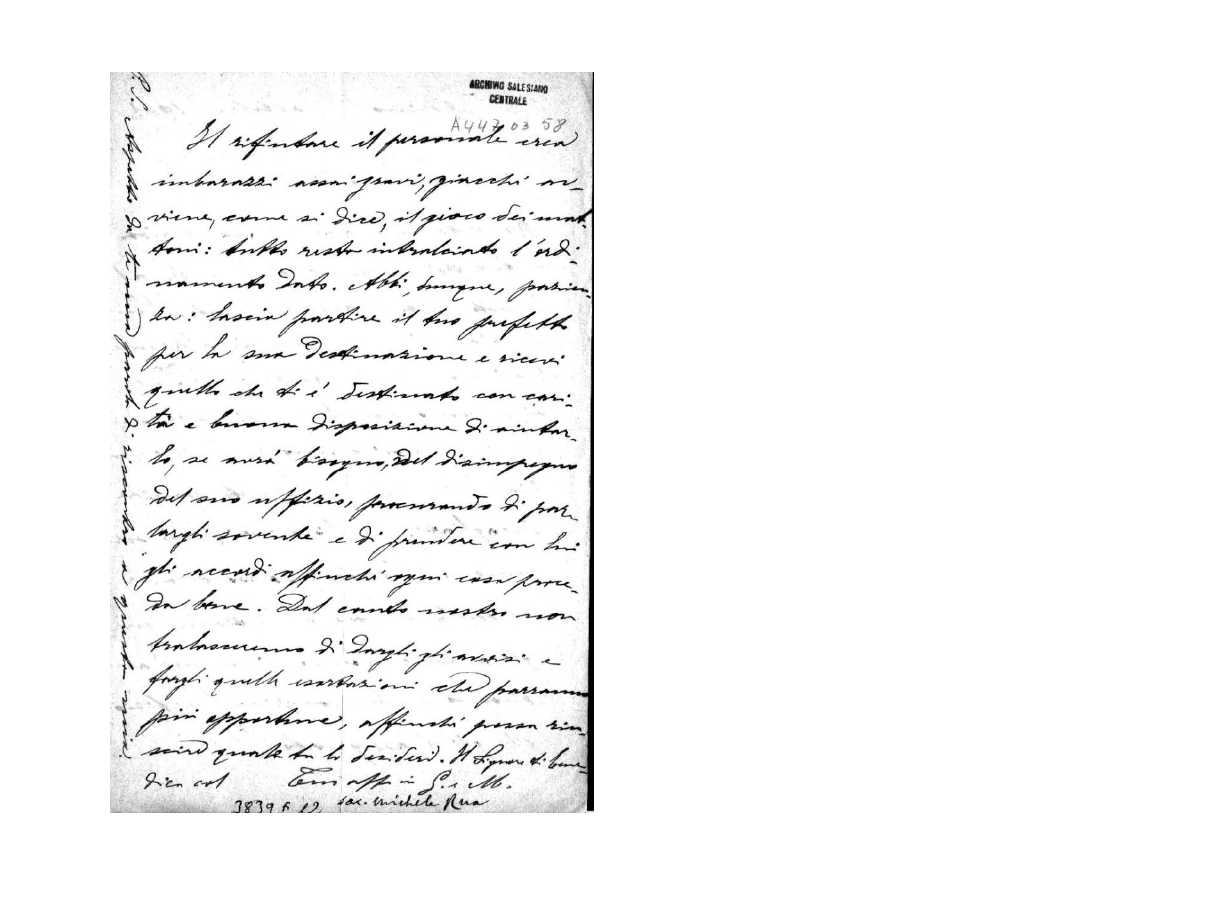 ARCHIVIO SALESIANO
CENTRALE
A447 03 58
Il rifiutare il personale crea
imbarazzi assai gravi, giacchè av-
viene, come si dice, il gioco dei mat-
toni: tutto resta intralciato l'ordi-
namento dato. Abbi, dunque, pazien-
za: lascia partire il tuo prefetto
per la sua destinazione e ricevi
quello che ti è destinato con cari-
tà e buona disposizione di aiutar-
lo, se avrà bisogno, nel disimpegno
del suo uffizio, procurando di par-
largli sovente e di prendere con lui
gli accordi affinchè ogni cosa proce-
da bene. Dal canto nostro non
tralasceremo di dargli gli avvisi e
fargli quelle esortazioni che parranno
più opportune, affinchè possa riu-
scire quale tu lo desideri. Il Signore ti bene-
dica col Tuo aff in G. e M.
sac. Michele Rua
3839
P.S. Aspetto da te una parola di riscontro a questa mia.